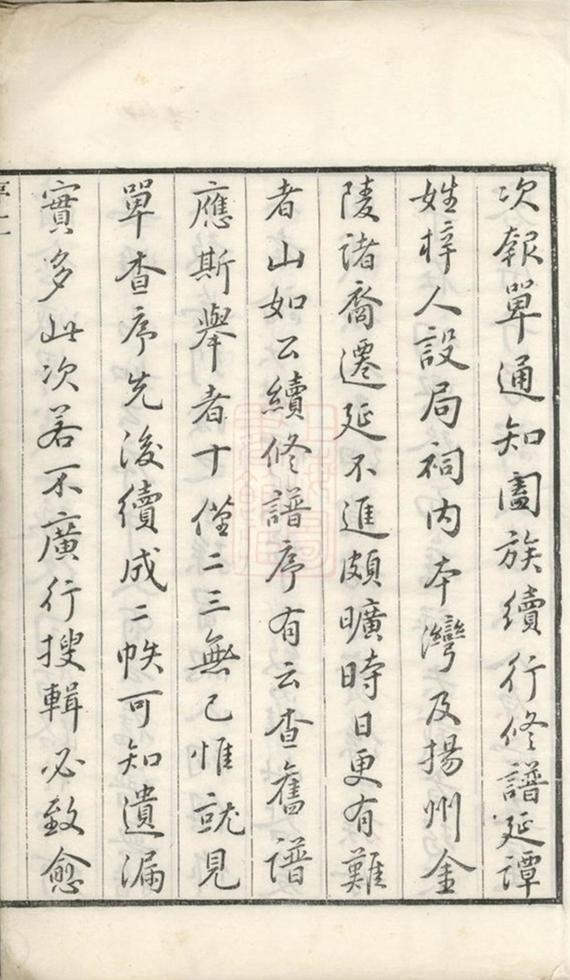 次報單通知闔族續行修譜延譚
姓梓人設局祠內本灣及揚州金
陵諸裔遷延不進頗曠時日更有難
者山如公續修譜序有云查舊譜
應斯舉者十僅二三無已惟就見
單查序先後續成二帙可知遺漏
實多此次若不廣行搜輯必致愈